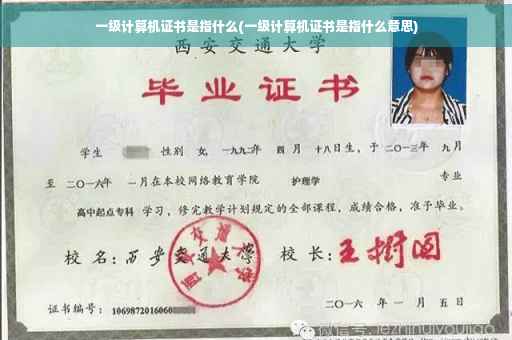 一级计算机证书是指什么(一级计算机证书是指什么意思)
西安交通大学
毕业证书
学生 性别 女, 一九九二年 四 月 十八日生, 于 二〇一三年 九月
至 二〇一六年 一月在本校网络教育学院 护理学 专业
高中起点专科 学习, 修完教学计划规定的全部课程, 成绩合格, 准予毕业。
校 名: 西安交通大学 校 长: 王树国
西安交通大学
证书编号: 1069872016060
二〇一六 年 一 月 五 日
微信号: jezhihuiyoujiao